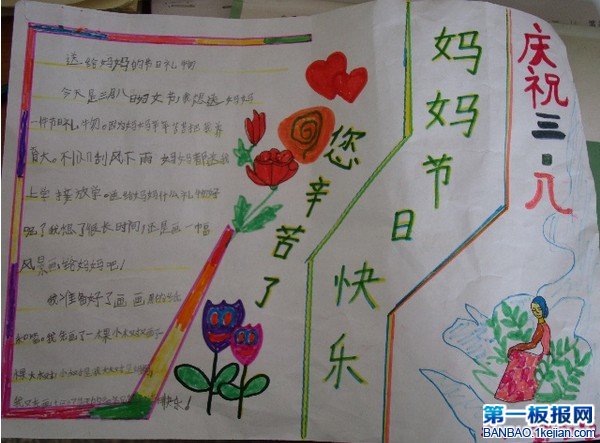 送给妈妈的节日礼物
今天是三月八日妇女节我想送妈妈
一件节日礼物。因为妈妈辛辛苦苦把我养
育大。不但刮风下雨 妈妈都送我
上学 接放学。画给妈妈什么礼物好
呢？我想了很长时间，还是画一幅
风景画给妈妈吧！
我准备好了画
我先画了一棵小
快乐！
您辛苦了
妈妈节日快乐
庆祝三·八
第一板报网
BANBAO.1kejian.com